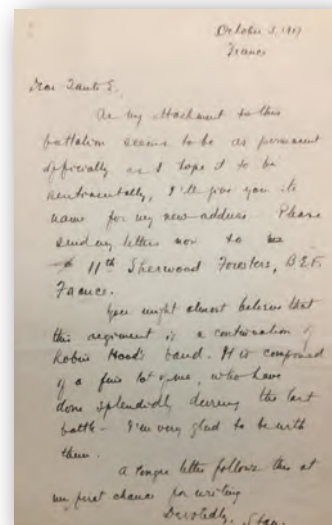 October 3, 1917
France
Dear Tante E.,
As my attachment to this
battalion seems to be as permanent
officially as I hope it to be
sentimentally, I'll give you its
name for my new address. Please
send my letters now to
11th Sherwood Foresters, B.E.F.
France.
You might almost believe that
this regiment is a continuation of
Robin Hood's band. It is composed
of a fine lot of men, who have
done splendidly during the last
battle - I'm very glad to be with
them.
A longer letter follows this at
my first chance for writing
Devotedly,